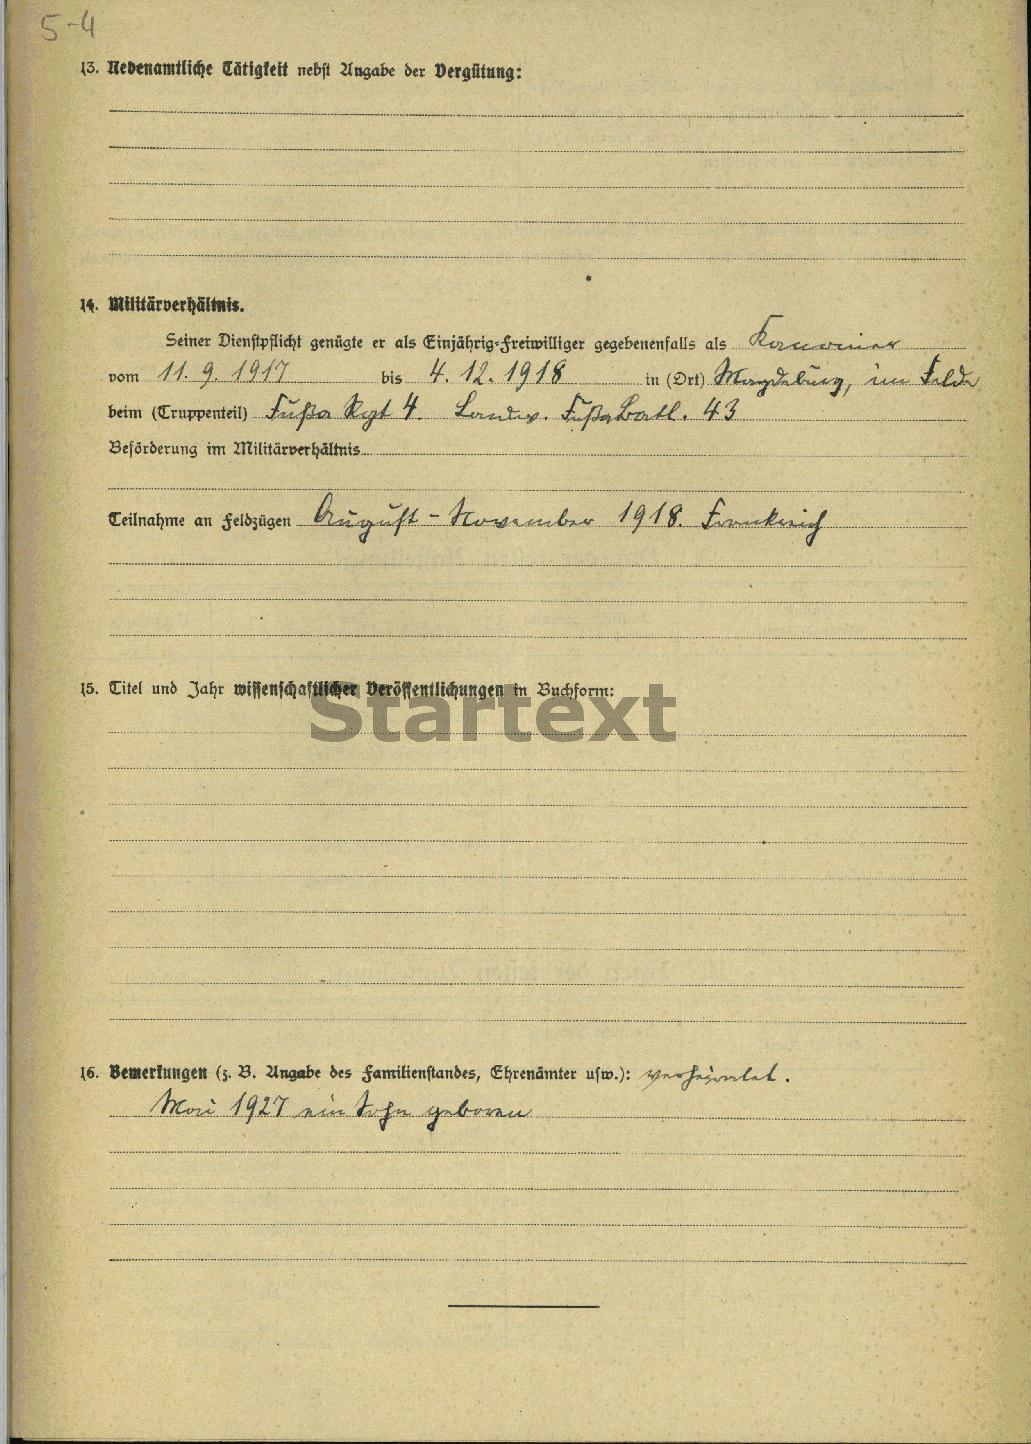 5-4
13. Nebenamtliche Tätigkeit nebst Angabe der Vergütung:
14. Militärverhältnis.
Seiner Dienstpflicht genügte er als Einjährig-Freiwilliger gegebenenfalls als Kanonier
vom 11. 9. 1917 bis 4. 12. 1918 in (Ort) Magdeburg, im Felde
beim (Truppenteil) Fußa Rgt 4. Landw. FußaBatl. 43
Beförderung im Militärverhältnis
Teilnahme an Feldzügen August - November 1918. Frankreich
15. Titel und Jahr wissenschaftlicher Veröffentlichungen in Buchform:
Startext
16. Bemerkungen (z. B. Angabe des Familienstandes, Ehrenämter usw.): verheiratet.
Mai 1927 ein Sohn geboren